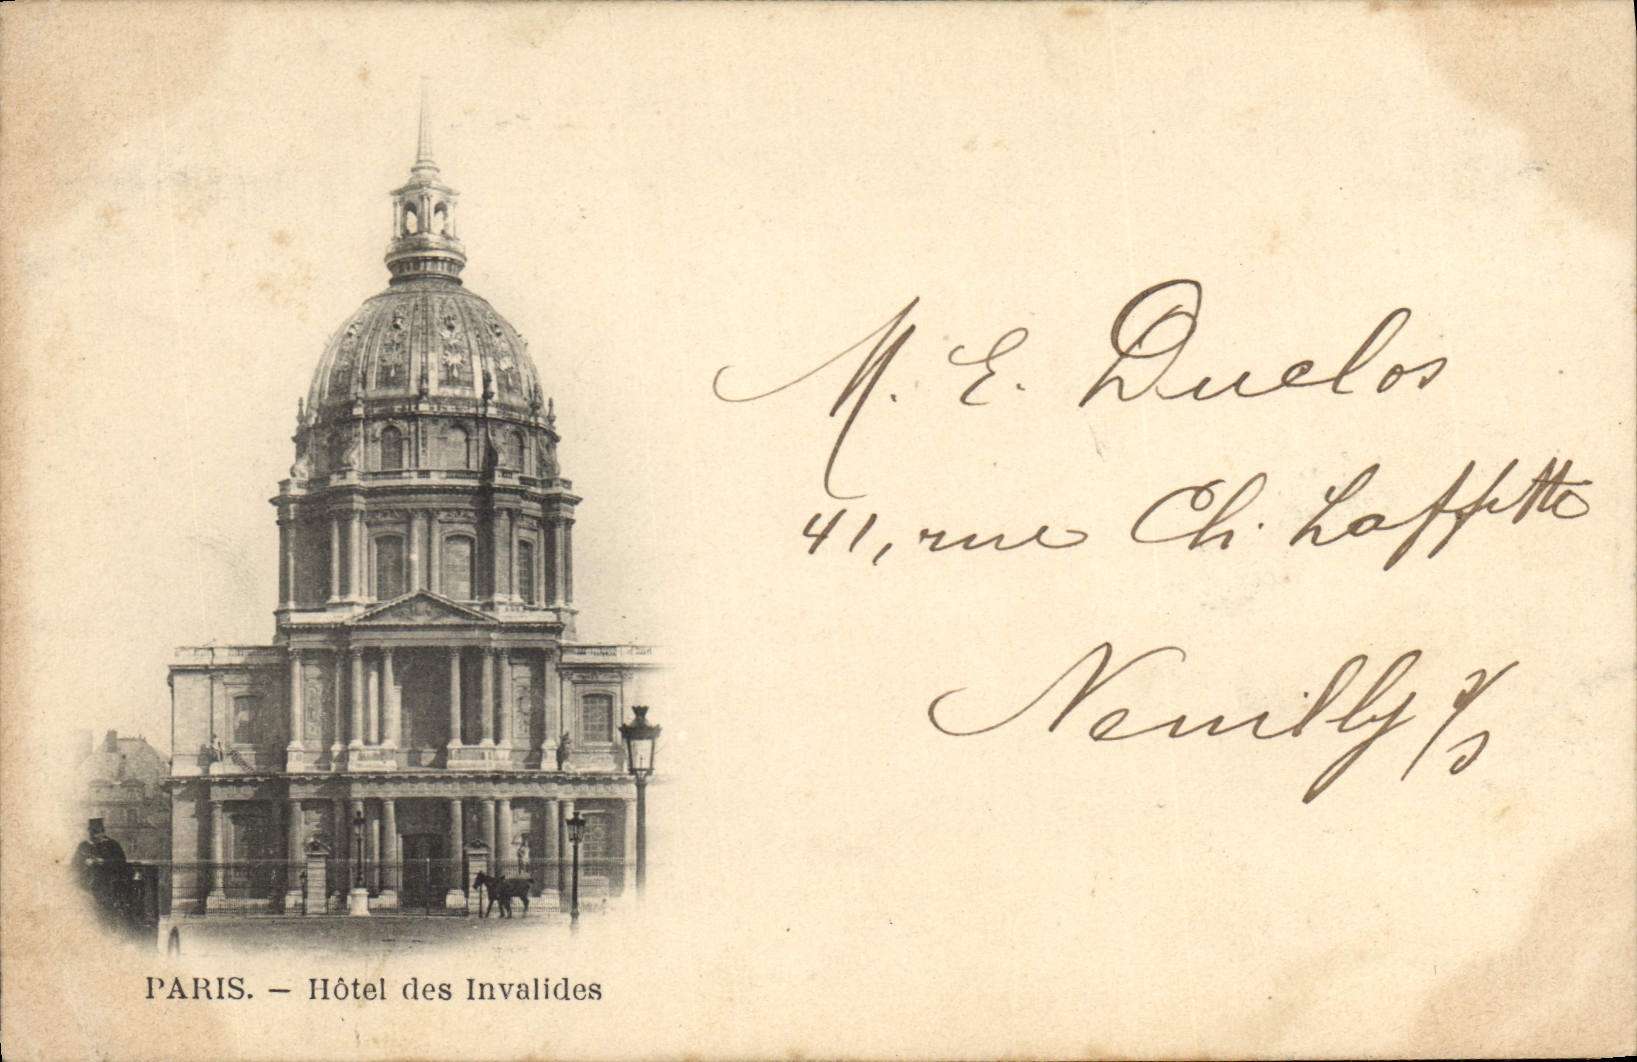 M. E. Duclos
41, rue Ch. Laffitte
Neuilly s/s
PARIS. — Hôtel des Invalides